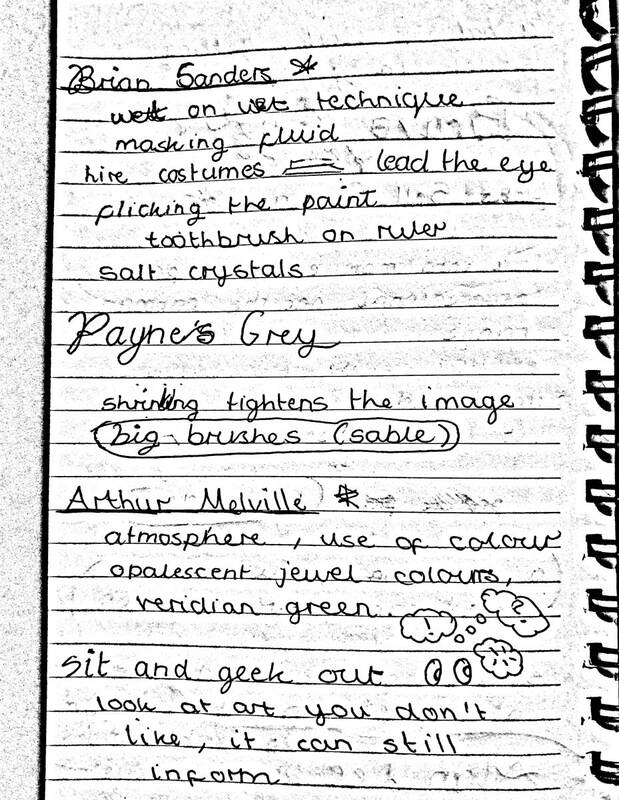 Brian Sanders *
wett on wet technique
masking fluid
hire costumes lead the eye
flicking the paint
toothbrush on ruler
salt crystals
Payne's Grey
shrinking tightens the image
(big brushes (sable))
Arthur Melville *
atmosphere, use of colour
opalescent jewel colours,
veridian green
! ?
sit and geek out
look at art you don't
like, it can still
inform